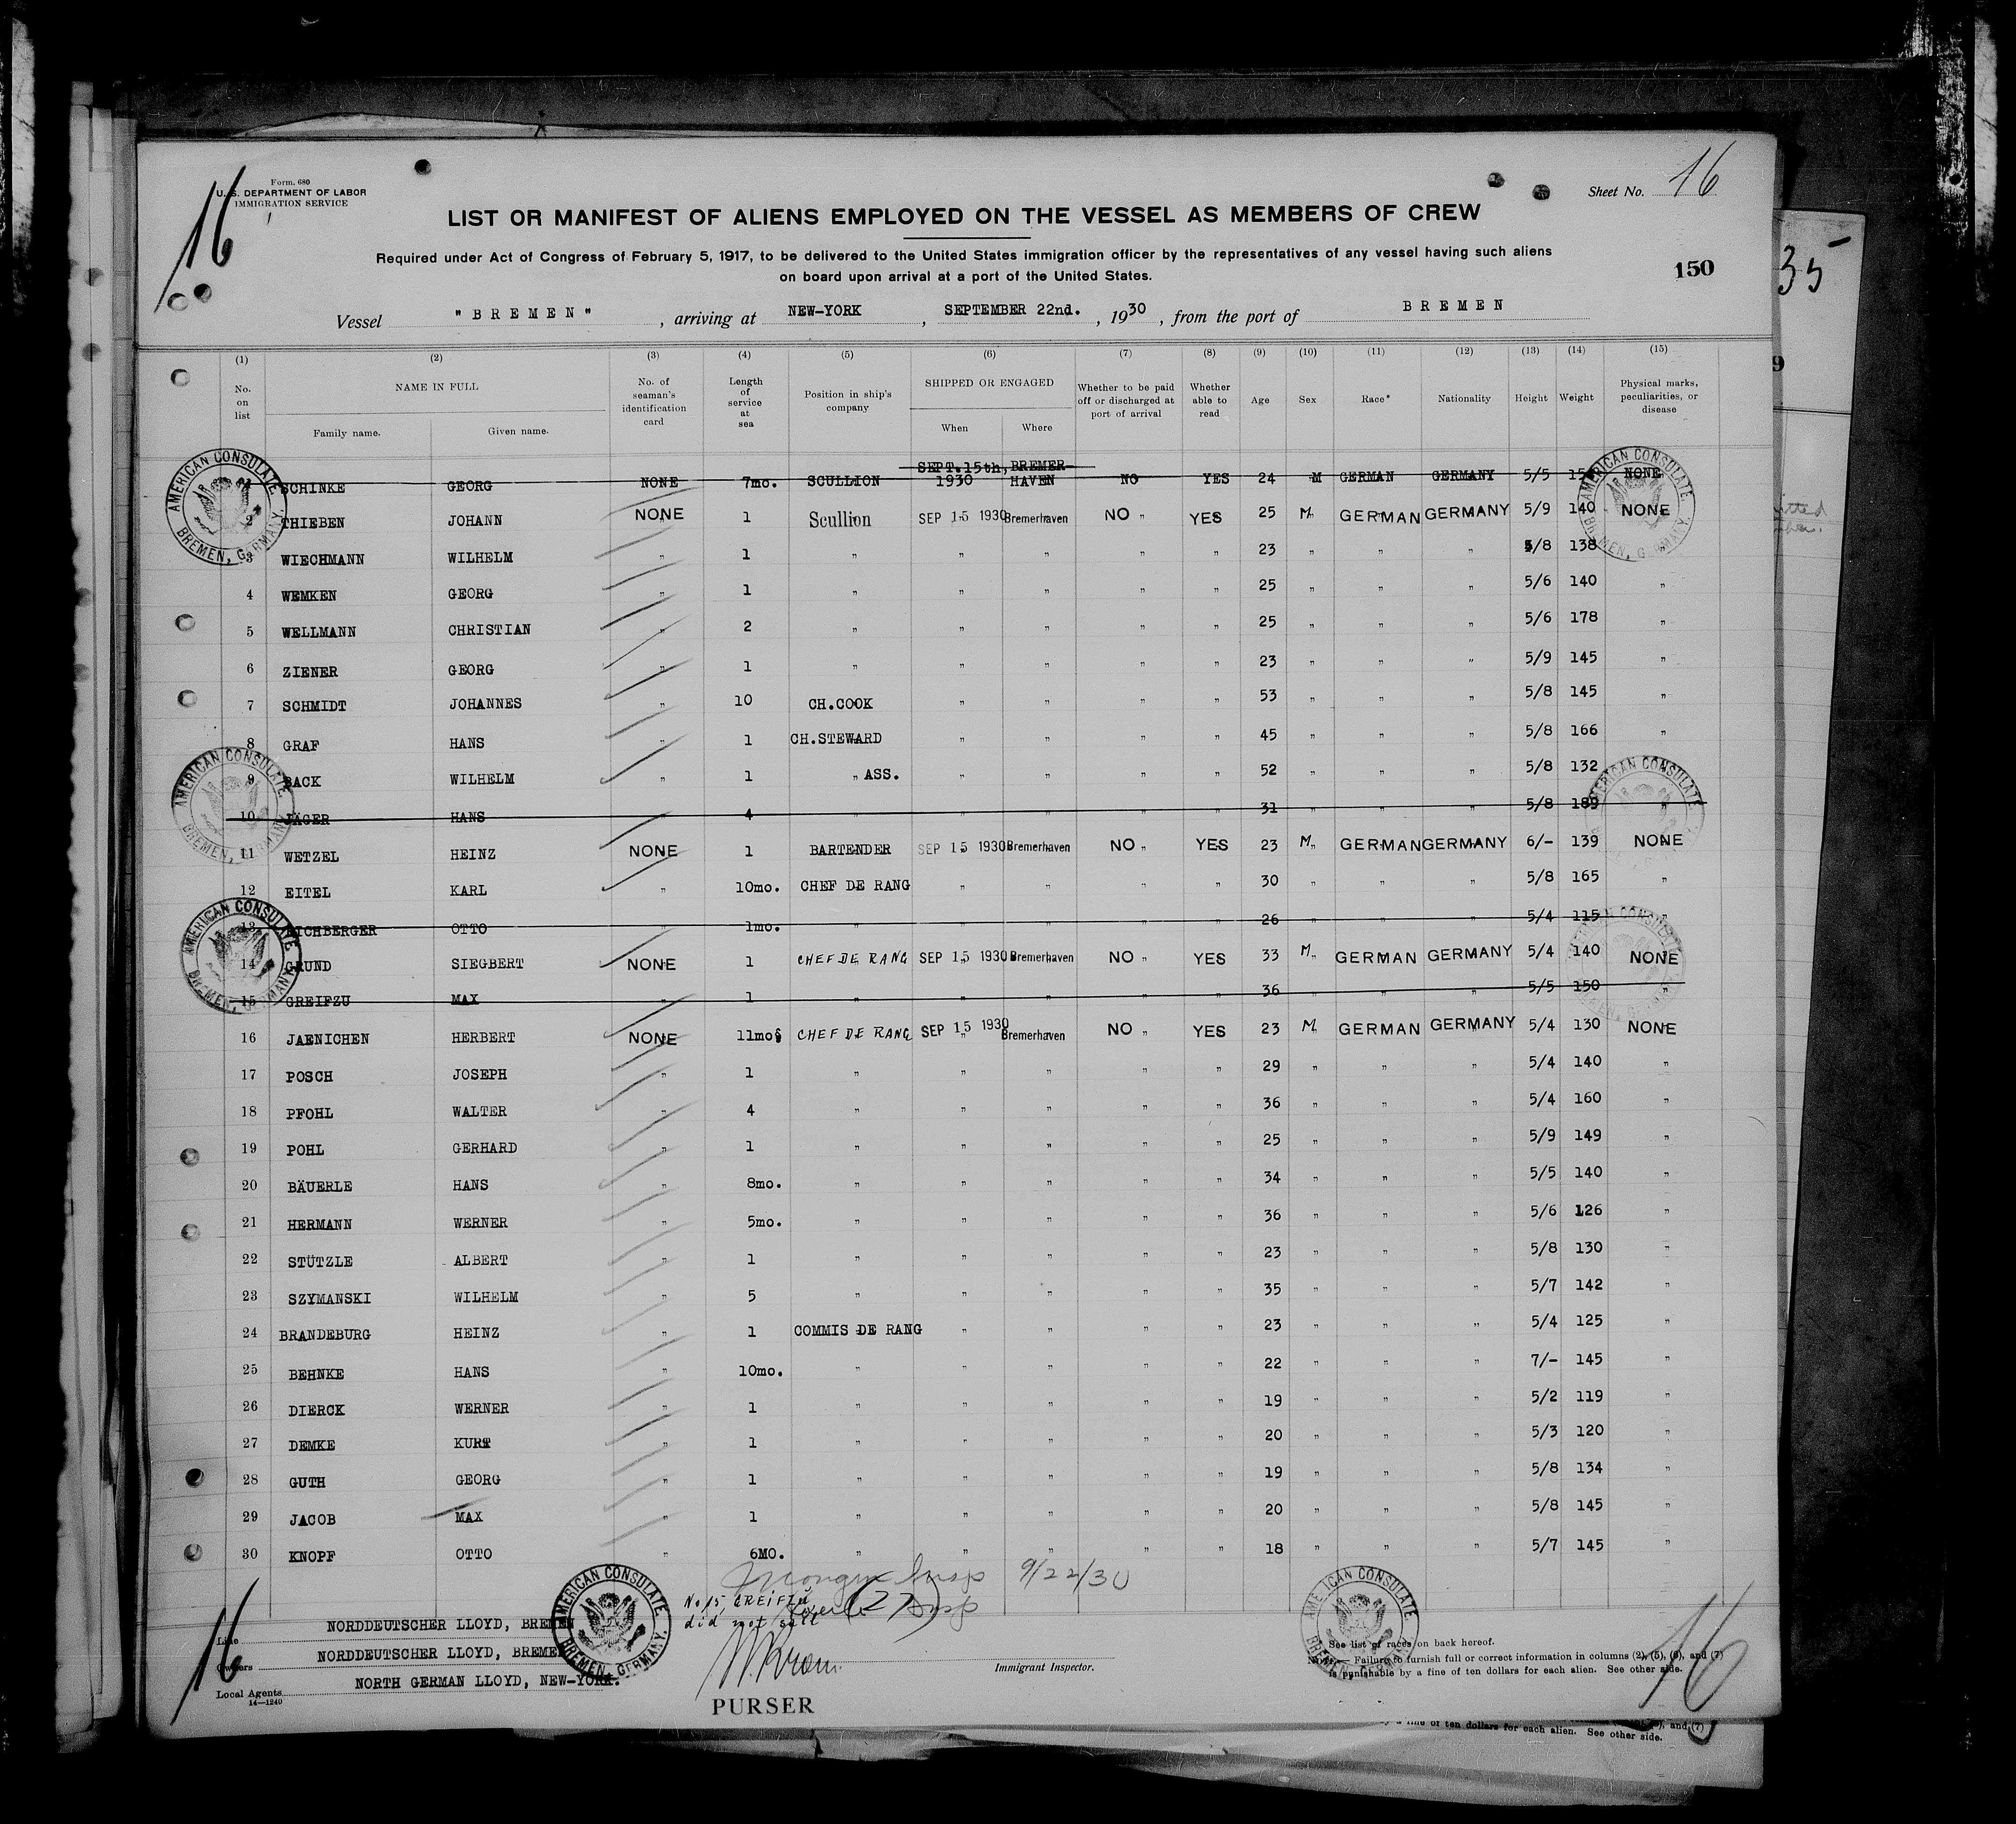 16
Form. 680
U. S. DEPARTMENT OF LABOR
IMMIGRATION SERVICE
Sheet No. 16
LIST OR MANIFEST OF ALIENS EMPLOYED ON THE VESSEL AS MEMBERS OF CREW
Required under Act of Congress of February 5, 1917, to be delivered to the United States immigration officer by the representatives of any vessel having such aliens
on board upon arrival at a port of the United States.
150
35
Vessel "BREMEN", arriving at NEW-YORK, SEPTEMBER 22nd., 1930, from the port of BREMEN
(1) (2) (3) (4) (5) (6) (7) (8) (9) (10) (11) (12) (13) (14) (15)
No. on list NAME IN FULL Family name. Given name. No. of seaman's identification card Length of service at sea Position in ship's company SHIPPED OR ENGAGED When Where Whether to be paid off or discharged at port of arrival Whether able to read Age Sex Race* Nationality Height Weight Physical marks, peculiarities, or disease
1 SCHINKE GEORG NONE 7mo. SCULLION SEPT.15th, 1930 BREMER-HAVEN NO YES 24 M GERMAN GERMANY 5/5 NONE
2 THIEBEN JOHANN NONE 1 Scullion SEP 15 1930 Bremerhaven NO " YES 25 M GERMAN GERMANY 5/9 140 NONE
3 WIECHMANN WILHELM " 1 " " " " " 23 " " " 5/8 138 "
4 WEMKEN GEORG " 1 " " " " " 25 " " " 5/6 140 "
5 WELLMANN CHRISTIAN " 2 " " " " " 25 " " " 5/6 178 "
6 ZIENER GEORG " 1 " " " " " 23 " " " 5/9 145 "
7 SCHMIDT JOHANNES " 10 CH.COOK " " " " 53 " " " 5/8 145 "
8 GRAF HANS " 1 CH.STEWARD " " " " 45 " " " 5/8 166 "
9 BACK WILHELM " 1 " ASS. " " " " 52 " " " 5/8 132 "
10 JÄGER HANS " 4 " " " " " 31 " " " 5/8 189 "
11 WETZEL HEINZ NONE 1 BARTENDER SEP 15 1930 Bremerhaven NO " YES 23 M" GERMAN GERMANY 6/- 139 NONE
12 EITEL KARL " 10mo. CHEF DE RANG " " " " 30 " " " 5/8 165 "
13 EICHBERGER OTTO " 1mo. " " " " " 26 " " " 5/4 115 "
14 GRUND SIEGBERT NONE 1 CHEF DE RANG SEP 15 1930 Bremerhaven NO " YES 33 M" GERMAN GERMANY 5/4 140 NONE
15 GREIFZU MAX " 1 " " " " " 36 " " " 5/5 150 "
16 JAENICHEN HERBERT NONE 11mo. CHEF DE RANG SEP 15 1930 Bremerhaven NO " YES 23 M" GERMAN GERMANY 5/4 130 NONE
17 POSCH JOSEPH " 1 " " " " " 29 " " " 5/4 140 "
18 PFOHL WALTER " 4 " " " " " 36 " " " 5/4 160 "
19 POHL GERHARD " 1 " " " " " 25 " " " 5/9 149 "
20 BÄUERLE HANS " 8mo. " " " " " 34 " " " 5/5 140 "
21 HERMANN WERNER " 5mo. " " " " " 36 " " " 5/6 126 "
22 STÜTZLE ALBERT " 1 " " " " " 23 " " " 5/8 130 "
23 SZYMANSKI WILHELM " 5 " " " " " 35 " " " 5/7 142 "
24 BRANDEBURG HEINZ " 1 COMMIS DE RANG " " " " 23 " " " 5/4 125 "
25 BEHNKE HANS " 10mo. " " " " " 22 " " " 7/- 145 "
26 DIERCK WERNER " 1 " " " " " 19 " " " 5/2 119 "
27 DEMKE KURT " 1 " " " " " 20 " " " 5/3 120 "
28 GUTH GEORG " 1 " " " " " 19 " " " 5/8 134 "
29 JACOB MAX " 1 " " " " " 20 " " " 5/8 145 "
30 KNOPF OTTO " 6MO. " " " " " 18 " " " 5/7 145 "
AMERICAN CONSULATE BREMEN, GERMANY.
Insp 9/22/30
No 15, GREIFZU,
did not sail
(27) Insp
16
Line NORDDEUTSCHER LLOYD, BREMEN
Owners NORDDEUTSCHER LLOYD, BREMEN
Local Agents NORTH GERMAN LLOYD, NEW-YORK.
14—1240
PURSER
Immigrant Inspector.
See list of races on back hereof.
NOTE.—Failure to furnish full or correct information in columns (2), (5), (6), and (7)
is punishable by a fine of ten dollars for each alien. See other side.
16
a fine of ten dollars for each alien. See other side.
and (7)